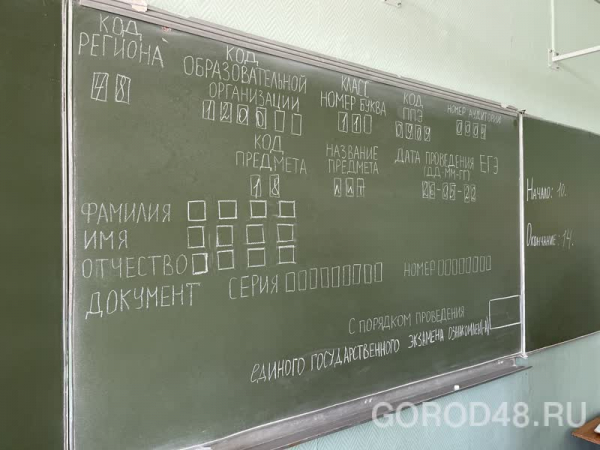 КОД РЕГИОНА
48
КОД ОБРАЗОВАТЕЛЬНОЙ ОРГАНИЗАЦИИ
1200
КЛАСС
НОМЕР БУКВА
11
КОД ППЭ
НОМЕР АУДИТОРИИ
КОД ПРЕДМЕТА
18
НАЗВАНИЕ ПРЕДМЕТА
ЛИТ
ДАТА ПРОВЕДЕНИЯ ЕГЭ
(ДД-ММ-ГГ)
26-05-22
ФАМИЛИЯ
ИМЯ
ОТЧЕСТВО
ДОКУМЕНТ СЕРИЯ НОМЕР
С ПОРЯДКОМ ПРОВЕДЕНИЯ
ЕДИНОГО ГОСУДАРСТВЕННОГО ЭКЗАМЕНА ОЗНАКОМЛЕН(-А)
Начало: 10.
Окончание: 14.
GOROD48.RU